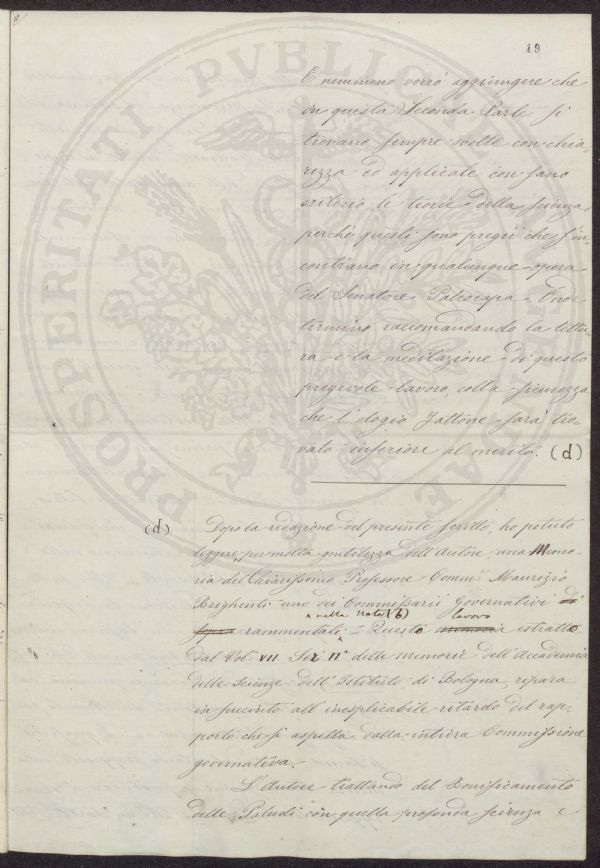 19
E nemmeno vorrò aggiungere che
in questa Seconda Parte si
trovano sempre svolte con chia-
rezza ed applicate con sano
criterio le teorie della scienza,
perchè questi sono pregii che s'in-
contrano in qualunque opera
del Senatore Paleocapa. Onde
termino raccomandando la lettu-
ra e la meditazione di questo
pregevole lavoro, colla sicurezza
che l'elogio fattone sarà tro-
vato inferiore al merito. (d)
(d) Dopo la redazione del presente scritto, ho potuto
leggere, per molta gentilezza dell'Autore, una Memo-
ria del Chiarissimo Professore Comm. Maurizio
Brighenti uno dei Commissarii Governativi di
sopra rammentati nella Nota (b) = Questo memoria lavoro estratto
dal Vol. VII Ser. II delle memorie dell'Accademia
delle Scienze dell'Istituto di Bologna, ripara
in succinto all'inesplicabile ritardo del rap-
porto che si aspetta dalla intiera Commissione
governativa.
L'Autore trattando del Bonificamento
delle Paludi con quella profonda scienza e
PROSPERITATI PVBLICAE